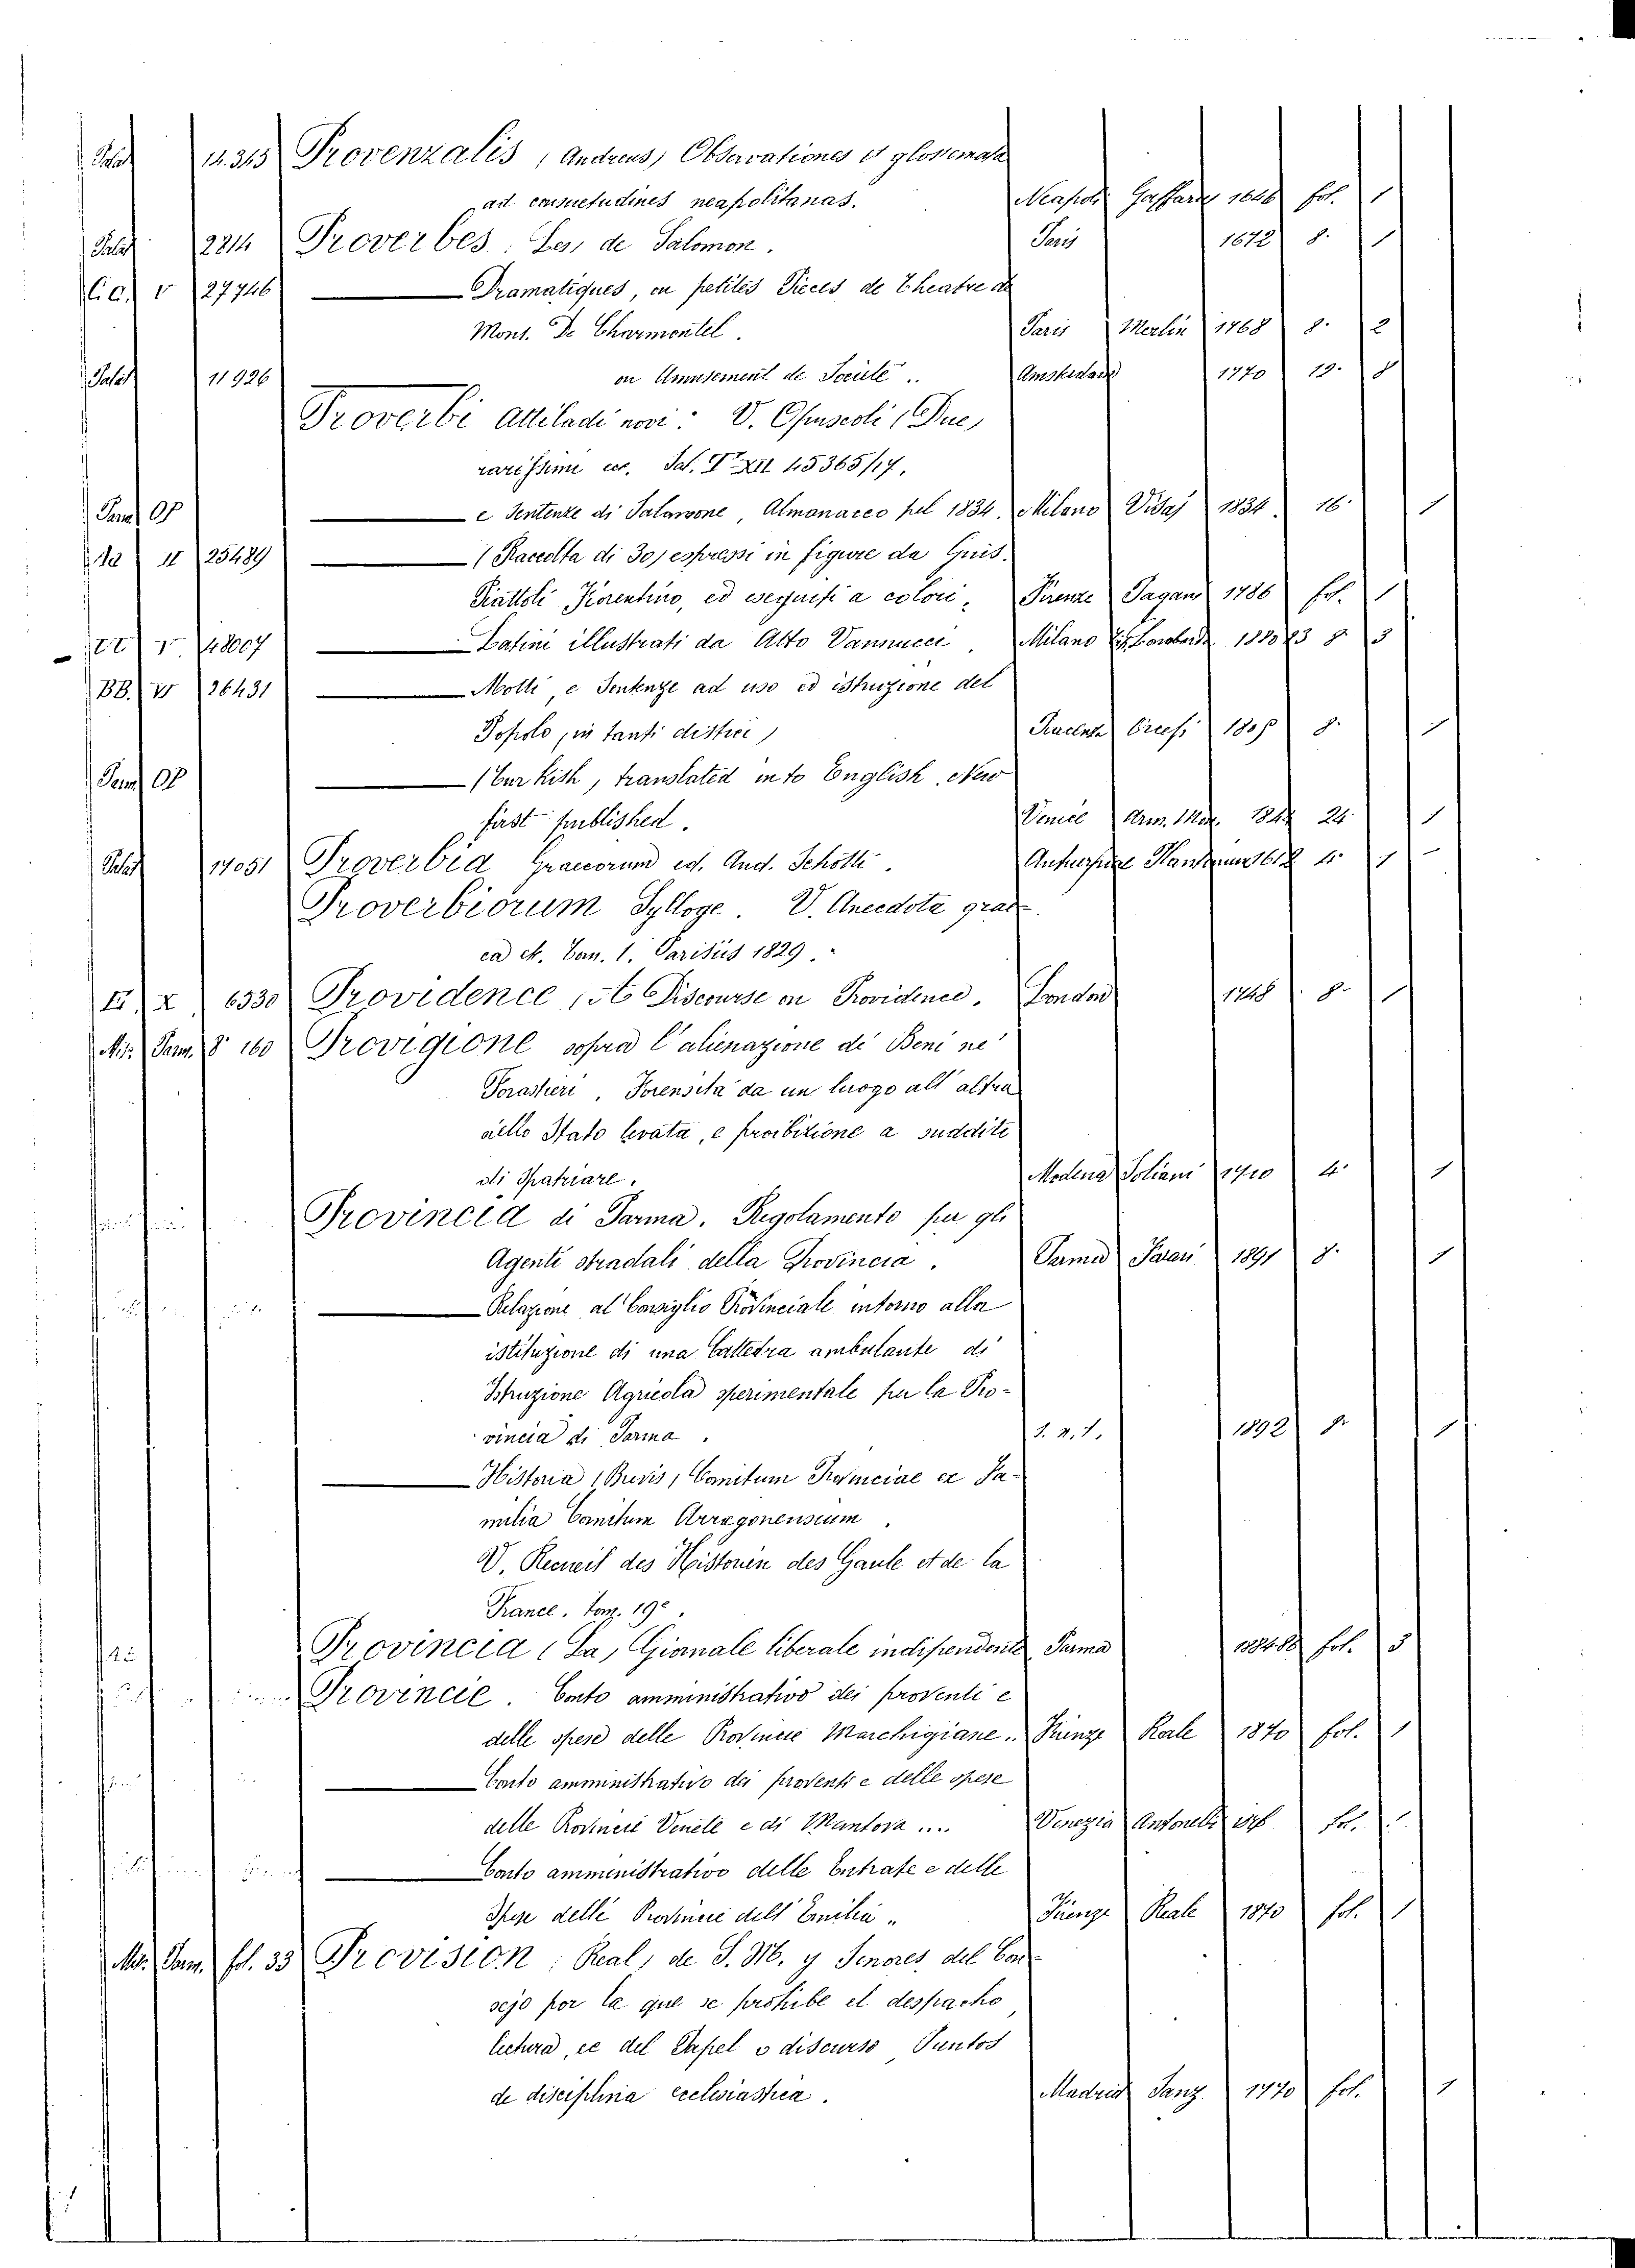 Palat 14.315 Provenzalis, (Andreas) Observationes et glossemata
ad consuetudines neapolitanas. Neapoli Gaffaro 1646 fol. 1
Palat 2214 Proverbes (Les) de Salomon. Paris 1672 8. 1
C.C. V 27746 Dramatiques, ou petites Pieces de Theatre de
Mons. De Charmontel. Paris Merlin 1768 8. 2
Palat 11926 ou Amusement de Société.. Amsterdam 1770 12. 8
Proverbi Attiladi novi: V. Opuscoli (Due)
rarissimi ec. Pal. XII 45365/17.
Parm OP e Sentenze di Salomone, Almanacco pel 1834. Milano Vidaj 1834. 16. 1
II 25489 (Raccolta di 30) espressi in figure da Guis.
Piattoli Fiorentino, ed eseguiti a colori. Firenze Pagani 1786 fol. 1
V 48007 Latini illustrati da Atto Vannucci. Milano Tip. Lombarda 1880 83 8. 3
BB. V 26431 Motti, e Sentenze ad uso ed istruzione del
Popolo, (in tanti distici) Piacenza 8.
Parm OP (Turkish), translated into English. New
first published. Venice Arm. Mon. 1844 24. 1
Palat 17051 Proverbia Graecorum ed. And. Schotti. Antuerpiae 1612 4. 1
Proverbiorum Sylloge. V. Anecdota grae-
ca ch. Can. 1. Parisiis 1829.
X 6530 Providence, (A) Discourse on Providence. London 1748 8. 1
Mis. Parm. 8° 160 Provigione sopra l'alienazione di Beni ne'
Forastieri, Forensità da un luogo all'altra
dello Stato levata, e proibizione a sudditi
di Spatriare. Modena Soliani 1710 4. 1
Provincia di Parma. Regolamento per gli
Agenti stradali della Provincia. Parma 1891 8. 1
Relazione al Consiglio Provinciale intorno alla
istituzione di una Cattedra ambulante di
Istruzione Agricola sperimentale per la Pro-
vincia di Parma. s. n. t. 1892 8. 1
Historia (Brevis) Comitum Provinciae ex Fa-
milia Comitum Arragonensium.
V. Recueil des Historien des Gaule et de la
France. tom. 19°.
Provincia (La) Giornale liberale indipendente Parma fol. 5
Provincie. Conto amministrativo dei proventi e
delle spese delle Provincie Marchigiane.. Firenze Reale 1870 fol. 1
Conto amministrativo dei proventi e delle spese
delle Provincie Venete e di Mantova .... Venezia Antonelli fol. 1
Conto amministrativo delle Entrate e delle
Spese delle Provincie dell'Emilia.. Firenze Reale 1870 fol. 1
Mis. Parm. fol. 33 Provision (Real) de S. M. y Senores del Con-
sejo por la que se prohibe el despacho,
lectura, ec del Papel o discurso Puntos
de disciplina ecclesiastica. Madrid Sanz. 1770 fol. 1